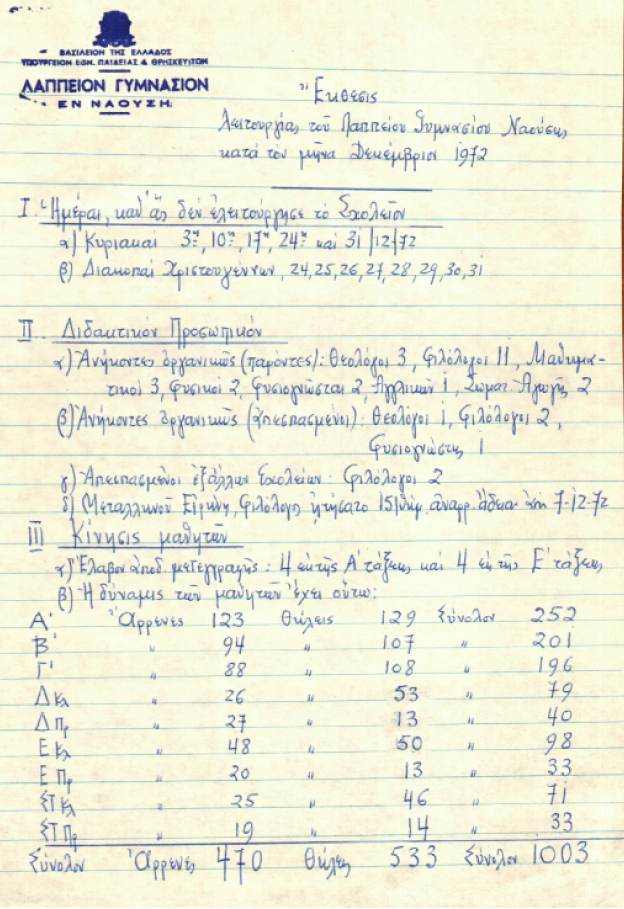 ΒΑΣΙΛΕΙΟΝ ΤΗΣ ΕΛΛΑΔΟΣ
ΥΠΟΥΡΓΕΙΟΝ ΕΘΝ. ΠΑΙΔΕΙΑΣ & ΘΡΗΣΚΕΥΤΩΝ
ΛΑΠΠΕΙΟΝ ΓΥΜΝΑΣΙΟΝ
ΕΝ ΝΑΟΥΣΗ
Ἔκθεσις
Λειτουργίας τοῦ Λαππείου Γυμνασίου Ναούσης
κατά τόν μῆνα Δεκέμβριον 1972
I. Ἡμέραι, καθ' ἅς δέν ἐλειτούργησε τό Σχολεῖον
α) Κυριακαί 3η, 10η, 17η, 24η καί 31/12/72
β) Διακοπαί Χριστουγέννων, 24, 25, 26, 27, 28, 29, 30, 31
II. Διδακτικόν Προσωπικόν
α) Ἀνήκοντες ὀργανικῶς (παρόντες): Θεολόγοι 3, Φιλόλογοι 11, Μαθημα-
τικοί 3, Φυσικοί 2, Φυσιογνῶσται 2, Ἀγγλικῶν 1, Σωματ. Ἀγωγῆς 2
β) Ἀνήκοντες ὀργανικῶς (ἀπεσπασμένοι): Θεολόγοι 1, Φιλόλογοι 2,
Φυσιογνώστης 1
γ) Ἀπεσπασμένοι ἐξ ἄλλων Σχολείων: Φιλόλογοι 2
δ) Μεταλληνοῦ Εἰρήνη, Φιλόλογος ᾐτήσατο 15/θήμ. ἀναρρ. ἄδειαν ἀπό 7-12-72
III Κίνησις μαθητῶν
α) Ἔλαβον ἀποδ. μετεγγραφῆς: 4 ἐκ τῆς Α' τάξεως καί 4 ἐκ τῆς Ε' τάξεως
β) Ἡ δύναμις τῶν μαθητῶν ἔχει οὕτω:
Α' Ἄρρενες 123 Θήλεις 129 Σύνολον 252
Β' " 94 " 107 " 201
Γ' " 88 " 108 " 196
Δ Κλ " 26 " 53 " 79
Δ Πρ " 27 " 13 " 40
Ε Κλ " 48 " 50 " 98
Ε Πρ " 20 " 13 " 33
ΣΤ Κλ " 25 " 46 " 71
ΣΤ Πρ " 19 " 14 " 33
Σύνολον Ἄρρενες 470 Θήλεις 533 Σύνολον 1003